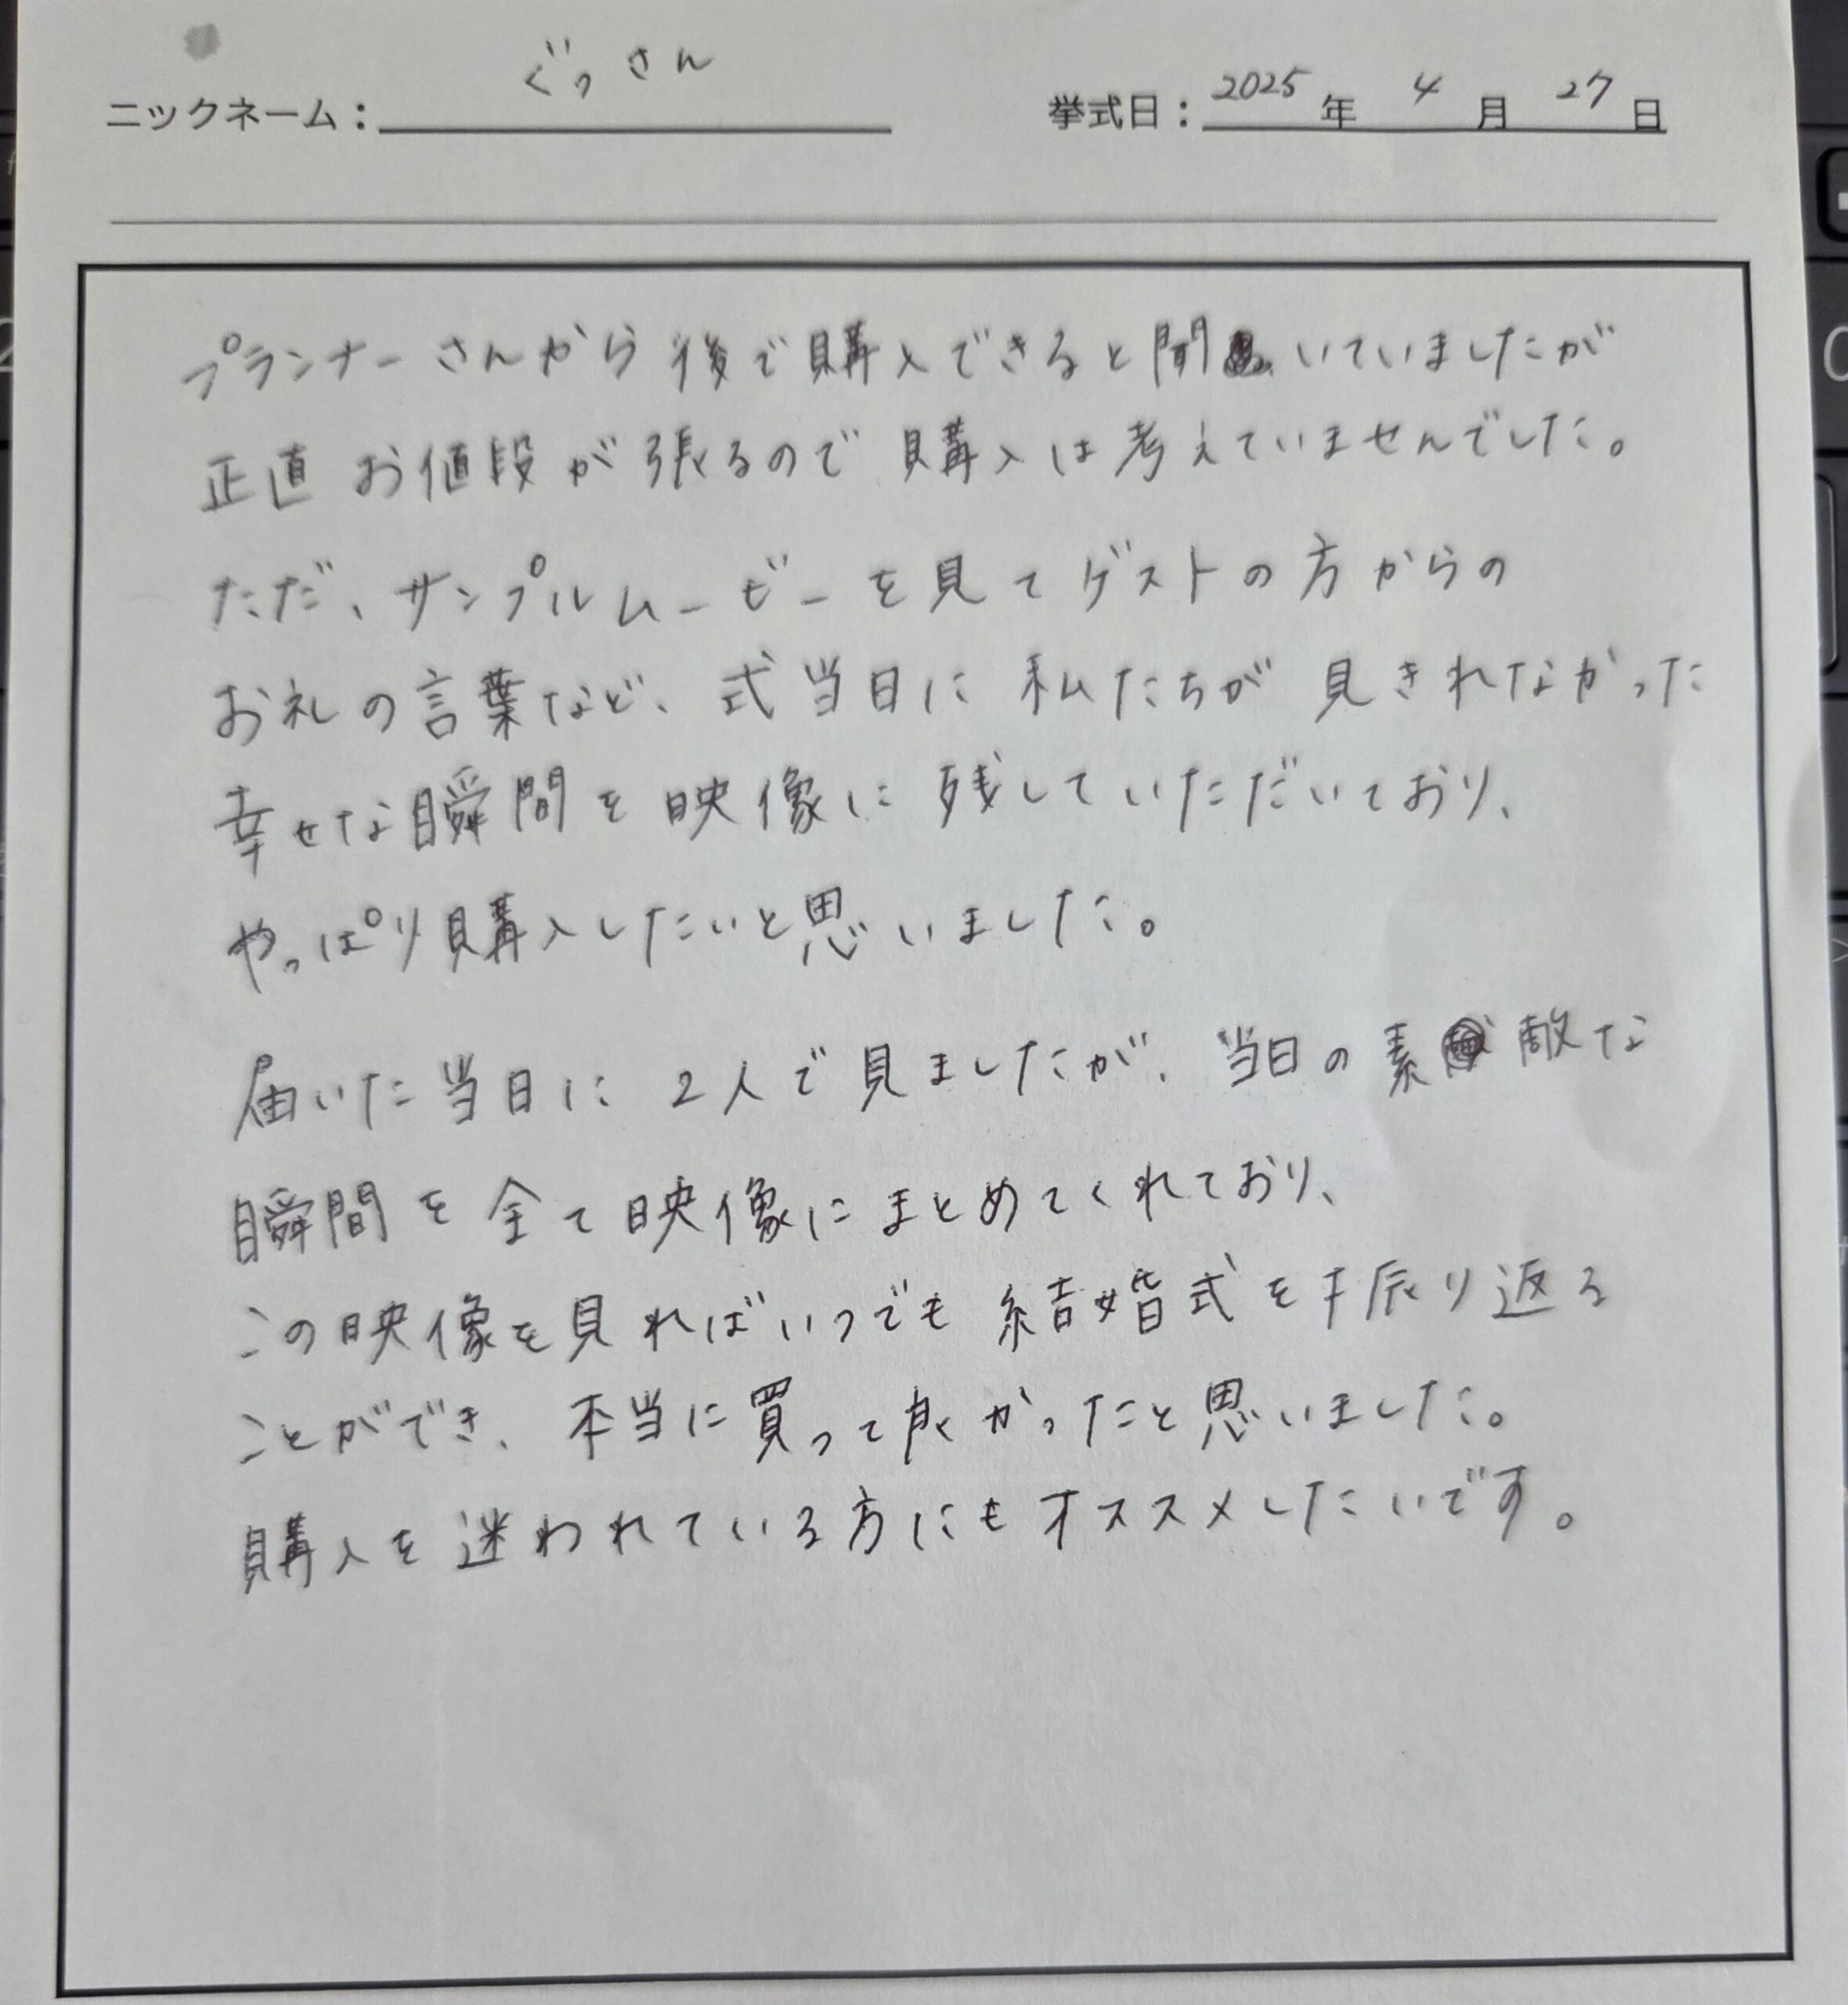 ニックネーム： ぐっさん 挙式日： 2025 年 4 月 27 日
プランナーさんから後で購入できると聞いていましたが
正直お値段が張るので購入は考えていませんでした。
ただ、サンプルムービーを見てゲストの方からの
お礼の言葉など、式当日に私たちが見きれなかった
幸せな瞬間を映像に残していただいており、
やっぱり購入したいと思いました。
届いた当日に2人で見ましたが、当日の素敵な
瞬間を全て映像にまとめてくれており、
この映像を見ればいつでも結婚式を振り返る
ことができ、本当に買って良かったと思いました。
購入を迷われている方にもオススメしたいです。